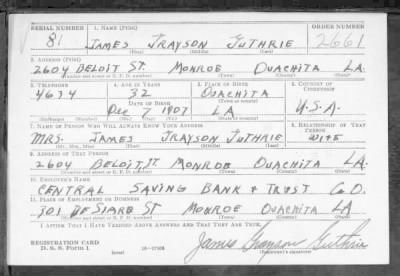 SERIAL NUMBER 1. NAME (Print) ORDER NUMBER
81 JAMES GRAYSON GUTHRIE 2661
(First) (Middle) (Last)
2. ADDRESS (Print)
2604 BELOIT ST. MONROE OUACHITA LA.
(Number and street or R. F. D. number) (Town) (County) (State)
3. TELEPHONE 4. AGE IN YEARS 5. PLACE OF BIRTH 6. COUNTRY OF CITIZENSHIP
4634 32 OUACHITA
DATE OF BIRTH (Town or county)
DEC 7 1907 LA U.S.A.
(Mo.) (Day) (Yr.) (State or country)
7. NAME OF PERSON WHO WILL ALWAYS KNOW YOUR ADDRESS 8. RELATIONSHIP OF THAT PERSON
MRS. JAMES GRAYSON GUTHRIE WIFE
(Mr., Mrs., Miss) (First) (Middle) (Last)
9. ADDRESS OF THAT PERSON
2604 BELOIT ST. MONROE OUACHITA LA.
(Number and street or R. F. D. number) (Town) (County) (State)
10. EMPLOYER'S NAME
CENTRAL SAVING BANK & TRUST CO.
11. PLACE OF EMPLOYMENT OR BUSINESS
301 DESIARD ST MONROE OUACHITA LA.
(Number and street or R. F. D. number) (Town) (County) (State)
I AFFIRM THAT I HAVE VERIFIED ABOVE ANSWERS AND THAT THEY ARE TRUE.
REGISTRATION CARD James Grayson Guthrie
D. S. S. Form 1 (over) (Registrant's signature)